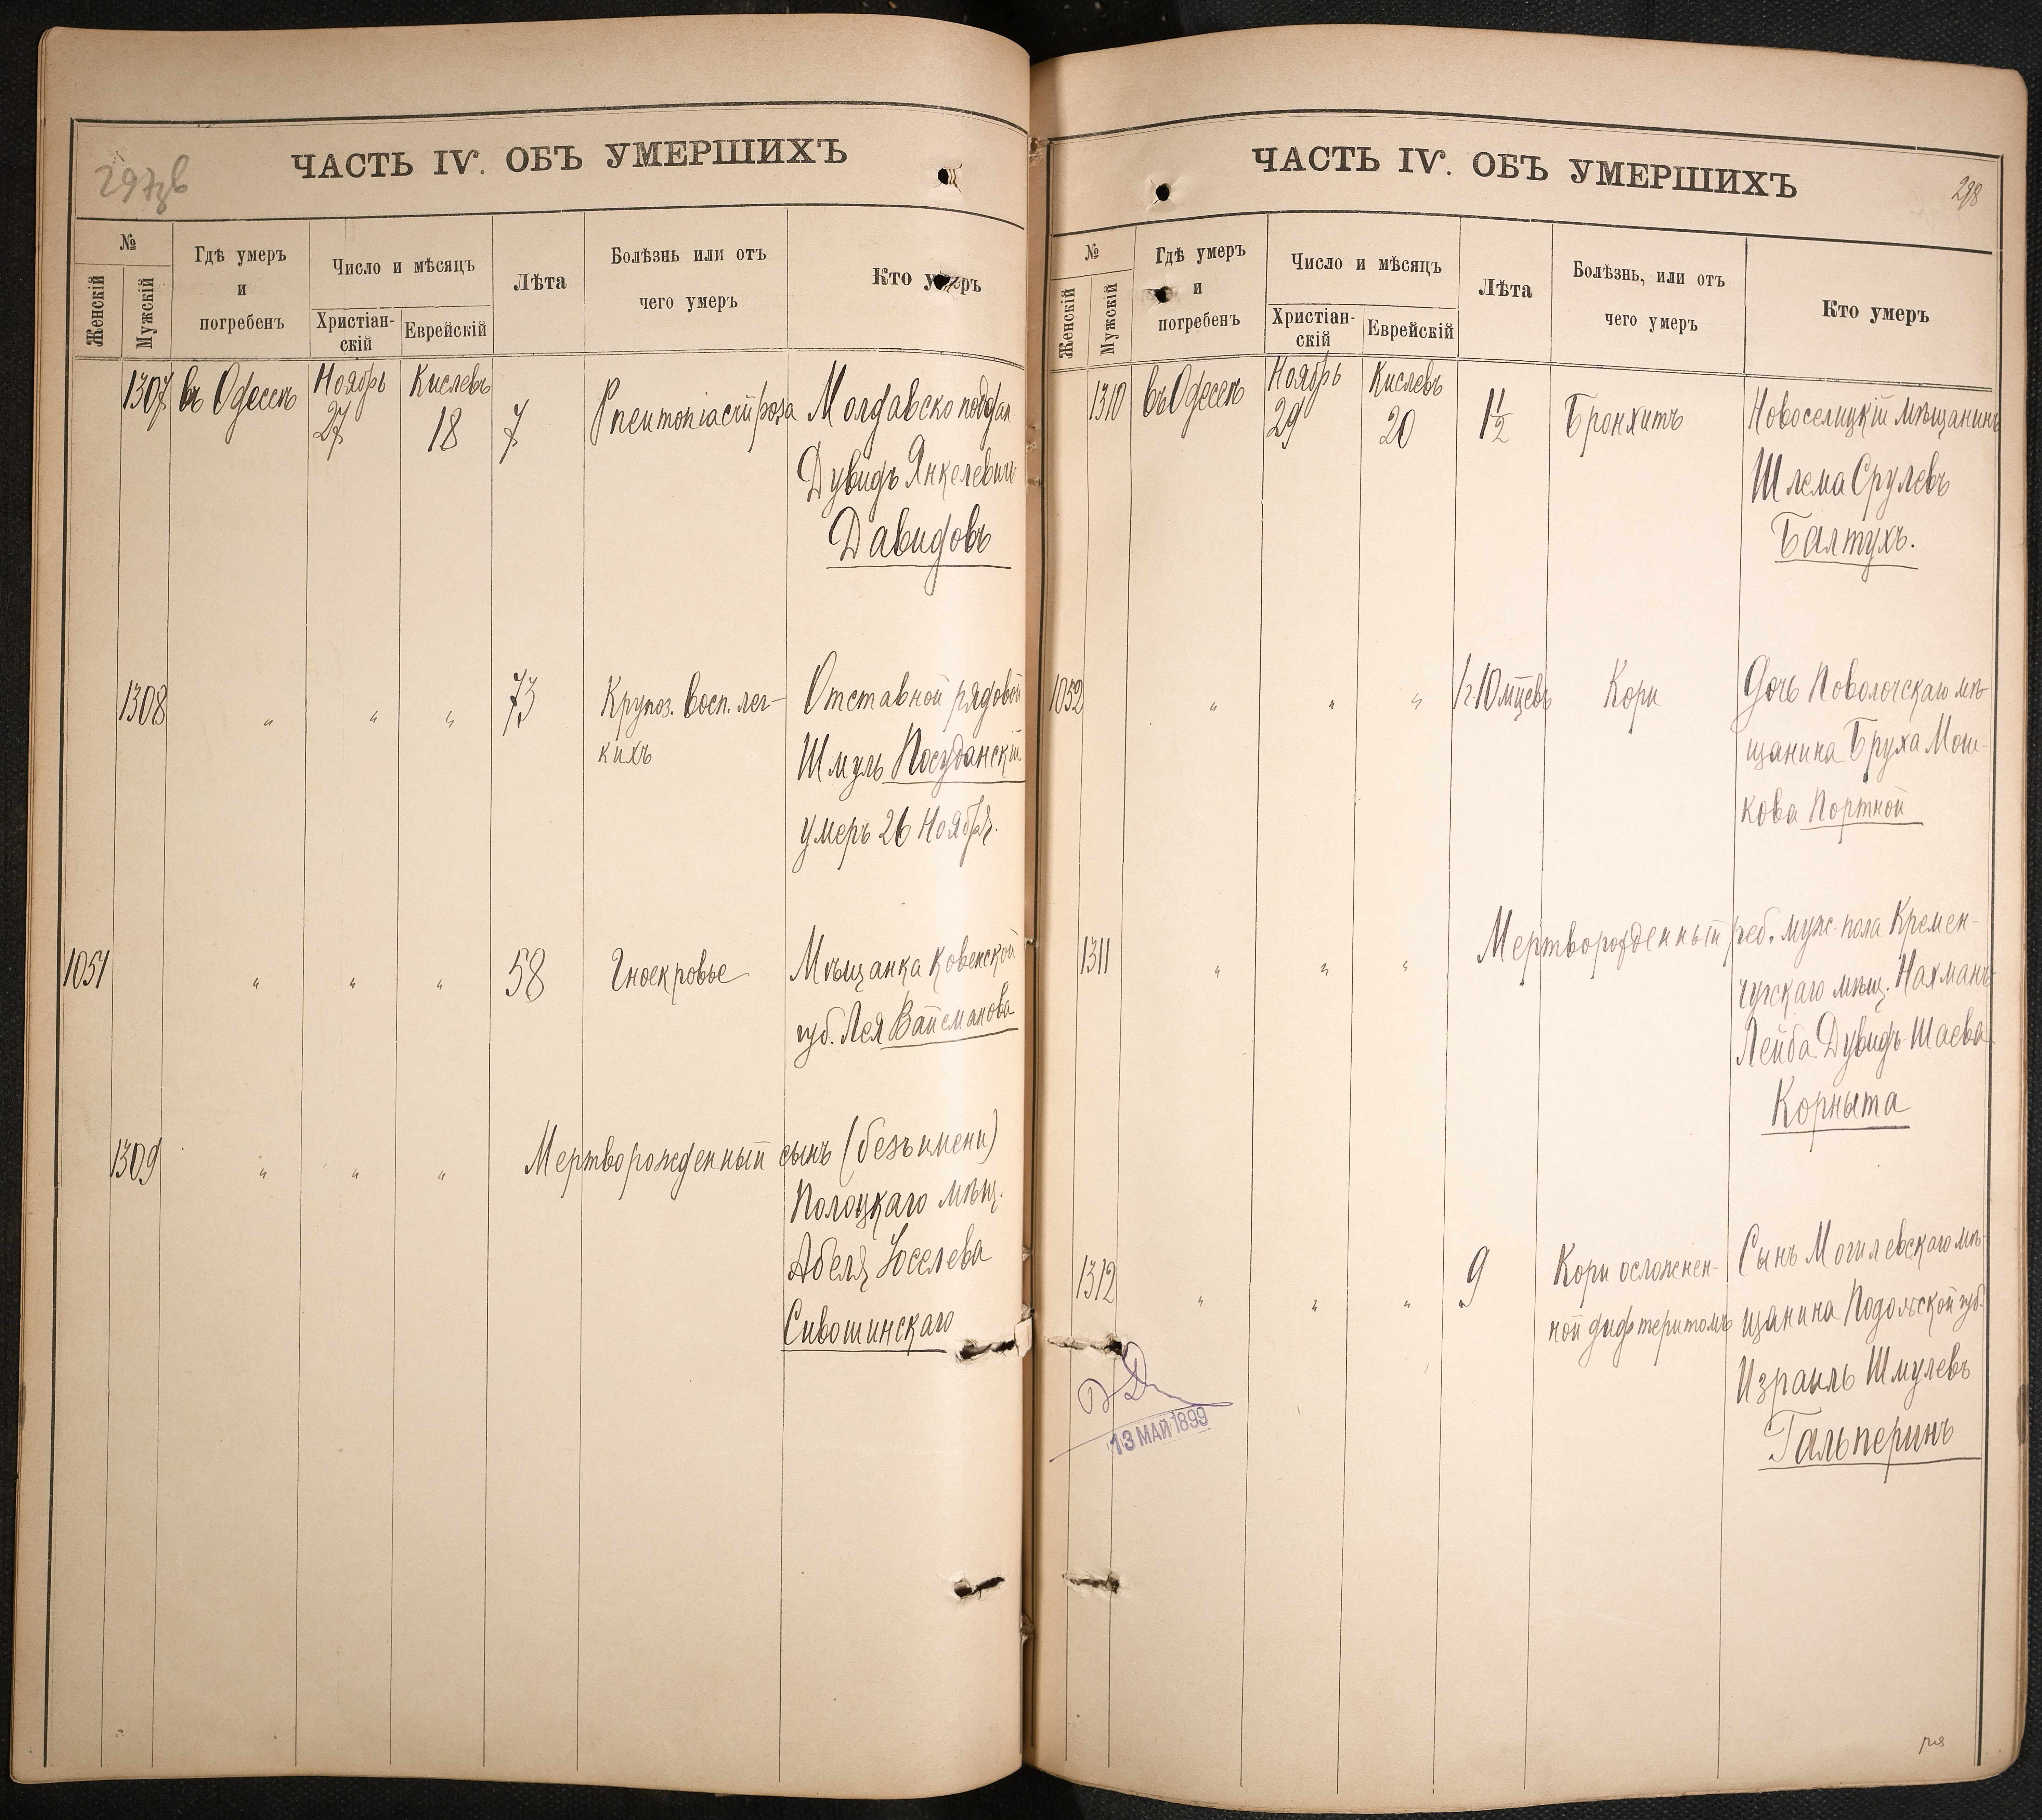 297об
ЧАСТЬ IV. ОБЪ УМЕРШИХЪ
№
Женскій
Мужскій
Гдѣ умеръ
и
погребенъ
Число и мѣсяцъ
Христіан-
скій
Еврейскій
Лѣта
Болѣзнь или отъ
чего умеръ
Кто умеръ
1307 въ Одессѣ Ноябрь 27 Кислевъ 18 7 Pneumonia crüposa Молдавско поддан
Дувидъ Янкелевичъ
Давидовъ
1308 " " " 73 Крупоз. восп. лег- Отставной рядовой
кихъ Шмуль Посуданскій
умеръ 26 Ноября.
1051 " " " 58 Гноекровье Мѣщанка Ковенской
губ. Лея Вайсманова
1309 " " " Мертворожденный сынъ (безъ имени)
Полоцкаго мѣщ.
Абеля Іоселева
Сивошинскаго
ЧАСТЬ IV. ОБЪ УМЕРШИХЪ
298
№
Женскій
Мужскій
Гдѣ умеръ
и
погребенъ
Число и мѣсяцъ
Христіан-
скій
Еврейскій
Лѣта
Болѣзнь, или отъ
чего умеръ
Кто умеръ
1310 въ Одессѣ Ноябрь 29 Кислевъ 20 1½ Бронхитъ Новоселицкій мѣщанинъ
Шлема Срулевъ
Балтухъ.
1052 " " " 1 г. 10 мцевъ Кори Дочь Поволочскаго мѣ-
щанина Бруха Мош-
кова Портной
1311 " " " Мертворожденный реб. муж. пола Кремен-
чугскаго мѣщ. Нахманъ
Лейба Дувидъ-Шаева
Корныта
1312 " " " 9 Кори осложнен- Сынъ Могилевскаго мѣ-
ной дифтеритомъ щанина Подольской губ.
Израиль Шмулевъ
Гальперинъ
13 МАЙ 1899